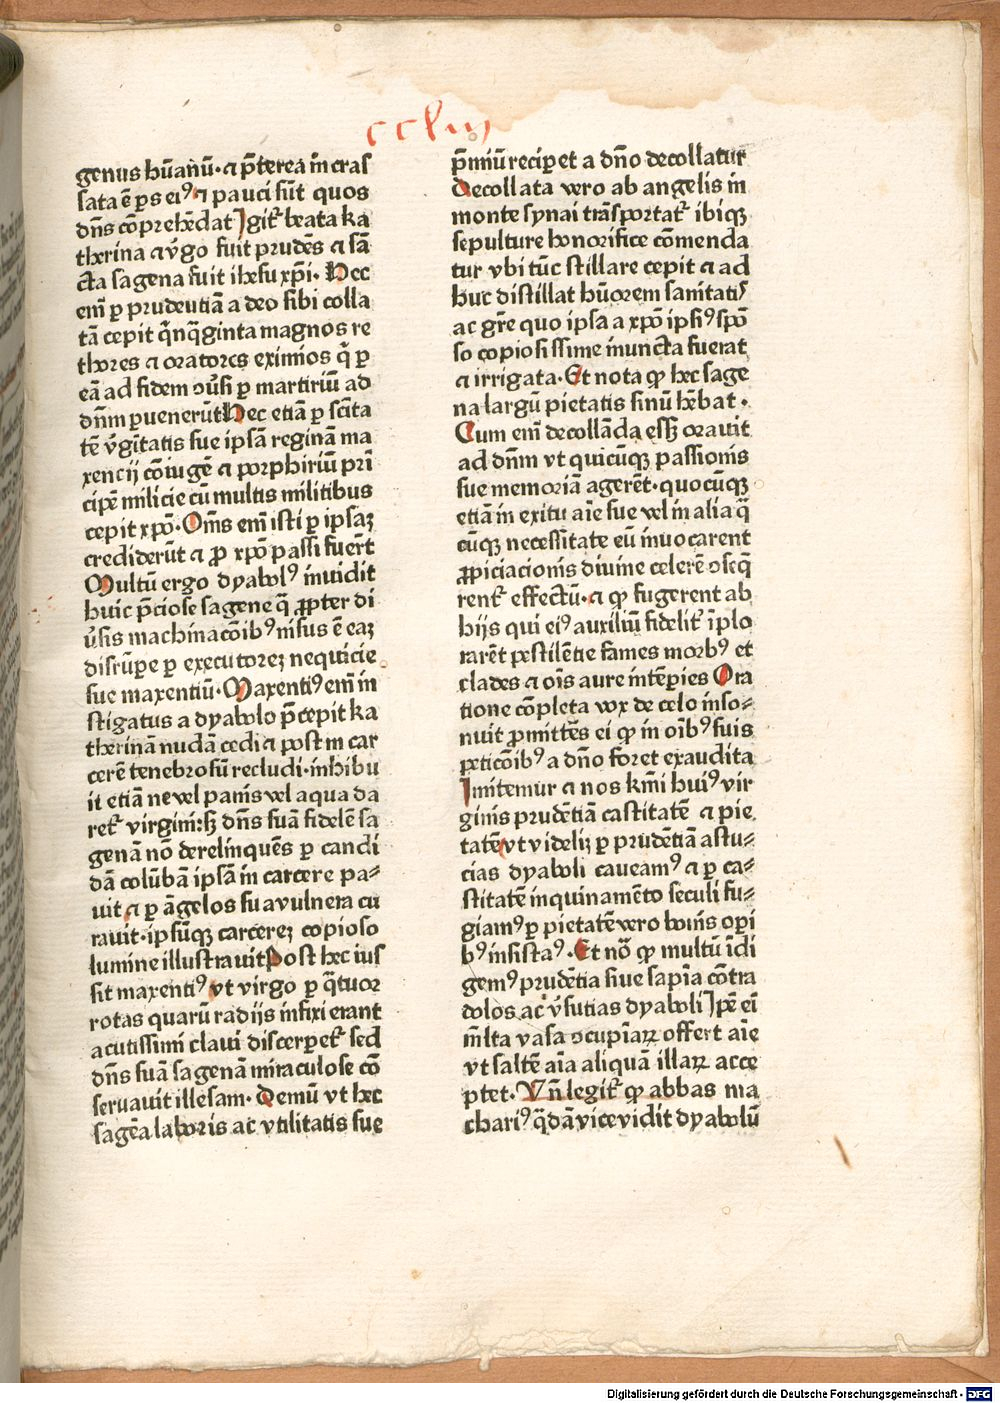 ccliij
genus hūanū· ⁊ p̄terea īncraſ
ſata ē ꝑs eiꝰ ⁊ pauci ſūt quos
dn̄s cōprehēdat Igit᷑ beata ka
therina ⁊ v̄go fuit prudēs ⁊ ſā
cta ſagena fuit iheſu xp̄i· Hec
eni̅ ꝑ prudeutiā a deo ſibi colla
tā cepit q̄nq̄ginta magnos re
thores ⁊ oratores eximios q̄ ꝑ
eā ad fidem ↄu̓ſi ꝑ martiriū ad
dn̄m ꝑuenerūt Hec etiā ꝑ ſcīta
tē v̄gītatis ſue ipſā reginā ma
xencij cōiugē ⁊ porphiriū pri̅
cipē milicie cū multis militibus
cepit xpō· Om̄s eni̅ iſti ꝑ ipſaꝫ
crediderūt ⁊ ꝓ xpō paſſi fuer̄t
Multū ergo dyabolꝰ inuidit
huic p̄cioſe ſagene q̄ ꝓpter di
u̓ſis machinacōibꝰ niſus ē eaꝫ
diſrūpe ꝑ executoreꝫ nequicie
ſue maxentiū· Maxentiꝰ eni̅ in
ſtigatus a dyabolo p̄cepit ka
therinā nudā cedi ⁊ poſt in car
cerē tenebroſū recludi· inhibu
it etiā ne vel panis vel aqua da
ret᷑ virgini: ſꝫ dn̄s ſuā fidelē ſa
genā nō derelinquēs ꝑ candi
dā colūbā ipſā in carcere pa⸗
uit ⁊ ꝑ āgelos ſua vulnera cu
rauit· ipſūqꝫ carcereꝫ copioſo
lumine illuſtrauit Poſt hec iuſ
ſit maxentiꝰ vt virgo ꝑ q̄tuor
rotas quarū radijs infixi erant
acutiſſimi claui diſcerꝑet᷑ ſed
dn̄s ſuā ſagenā miraculoſe cō
ſeruauit illeſam· Demū vt hec
ſagēa laboris ac vtilitatis ſue
p̄miū reciꝑet a dn̄o decollatur
Decollata vero ab angelis in
monte ſynai trāſportat᷑ ibiqꝫ
ſepulture honorifice cōmenda
tur vbi tūc ſtillare cepit ⁊ ad
huc diſtillat hūorem ſanitatꝭ
ac gr̄e quo ipſa a xpō ipſiꝰ ſpō
ſo copioſiſſime inuncta fuerat
⁊ irrigata· Et nota ꝙ hec ſage
na largū pietatis ſinū hēbat ·
Cum eni̅ decollāda eſſꝫ orauit
ad dn̄m vt quicūqꝫ paſſionis
ſue memoriā agerēt· quocūqꝫ
etiā in exitu aīe ſue vel in alia q̄
cūqꝫ neceſſitate eū inuocarent
ꝓpiciacionis diuine celerē ↄſeq̄
rent᷑ effectū· ⁊ ꝙ fugerent ab
hijs qui eiꝰ auxiliū fidelit᷑ īplo
rarēt peſtilētie fames morbꝰ et
clades ⁊ oīs aure intēꝑies Ora
tione cōpleta vox de celo inſo⸗
nuit ꝓmittēs ei ꝙ in oībꝰ ſuis
peticōibꝰ a dn̄o foret exaudita
Imitemur ⁊ nos km̄i huiꝰ vir
ginis prudētiā caſtitatē ⁊ pie
tatē vt videliꝫ ꝑ prudētiā aſtu⸗
cias dyaboli caueamꝰ ⁊ ꝑ ca⸗
ſtitatē inquinamēto ſeculi fu⸗
giamꝰ ꝑ pietatē vero bonis oꝑi
bꝰ inſiſtaꝰ· Et nō ꝙ multū īdi
gemꝰ prudētia ſiue ſapīa cōtra
dolos ac v̓ſutias dyaboli Ipē ei̅
m̄lta vaſa ↄcupīaꝝ offert aīe
vt ſaltē aīa aliquā illaꝝ acce
ptet· Vn̄ legit᷑ ꝙ abbas ma
chariꝰ q̄dā vice vidit dyabolū
Digitalisierung gefördert durch die Deutsche Forschungsgemeinschaft - DFG